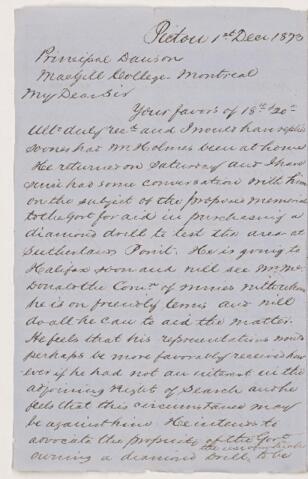 Pictou 1st Dec 1873
Principal Dawson
MacGill College Montreal
My Dear Sir
Your favors of 18th & 20th
Ulto duly recd and I would have replied
sooner had Mr Holmes been at home
He returned on Saturday and I have
since had some conversation with him
on the subject of the proposed memorial
to the Govt for aid in purchasing a
diamond drill to test the area at
Sutherlands Point. He is going to
Halifax soon and will see Mr Mc
Donald the Comr of mines with whom
he is on friendly terms and will
do all he can to aid the matter.
He feels that his representations would
perhaps be more favorably received how
ever if he had not an interest in the
adjoining Right of Search and he
feels that this circumstance may
be against him. He intends to
advocate the propriety of the Govt
owning a diamond Drill to be